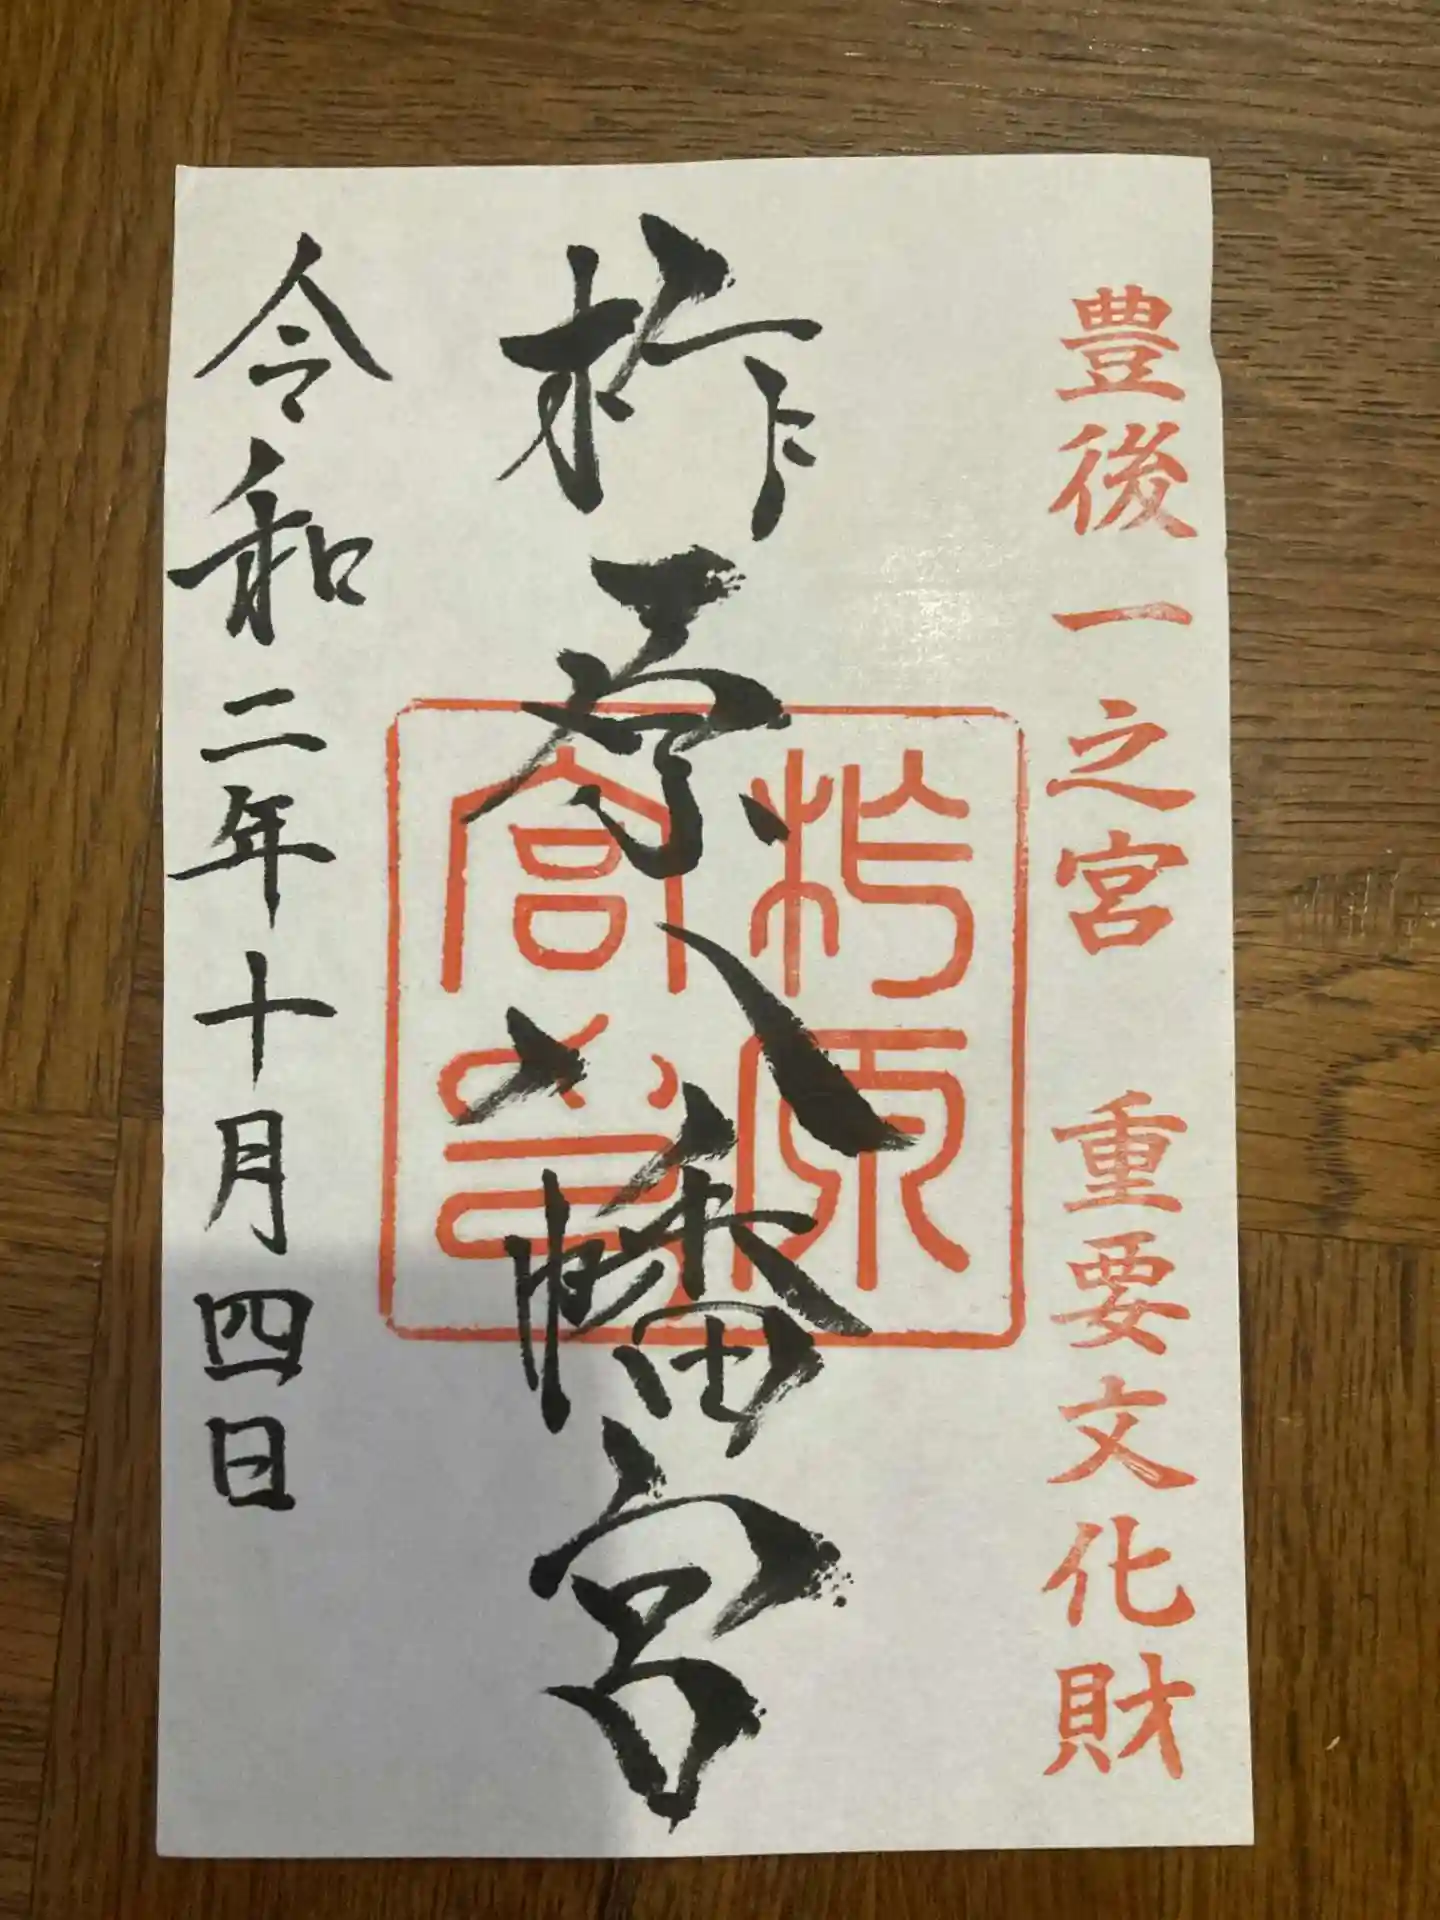 豊後一之宮　重要文化財
柞原八幡宮
柞原
宮印
令和二年十月四日